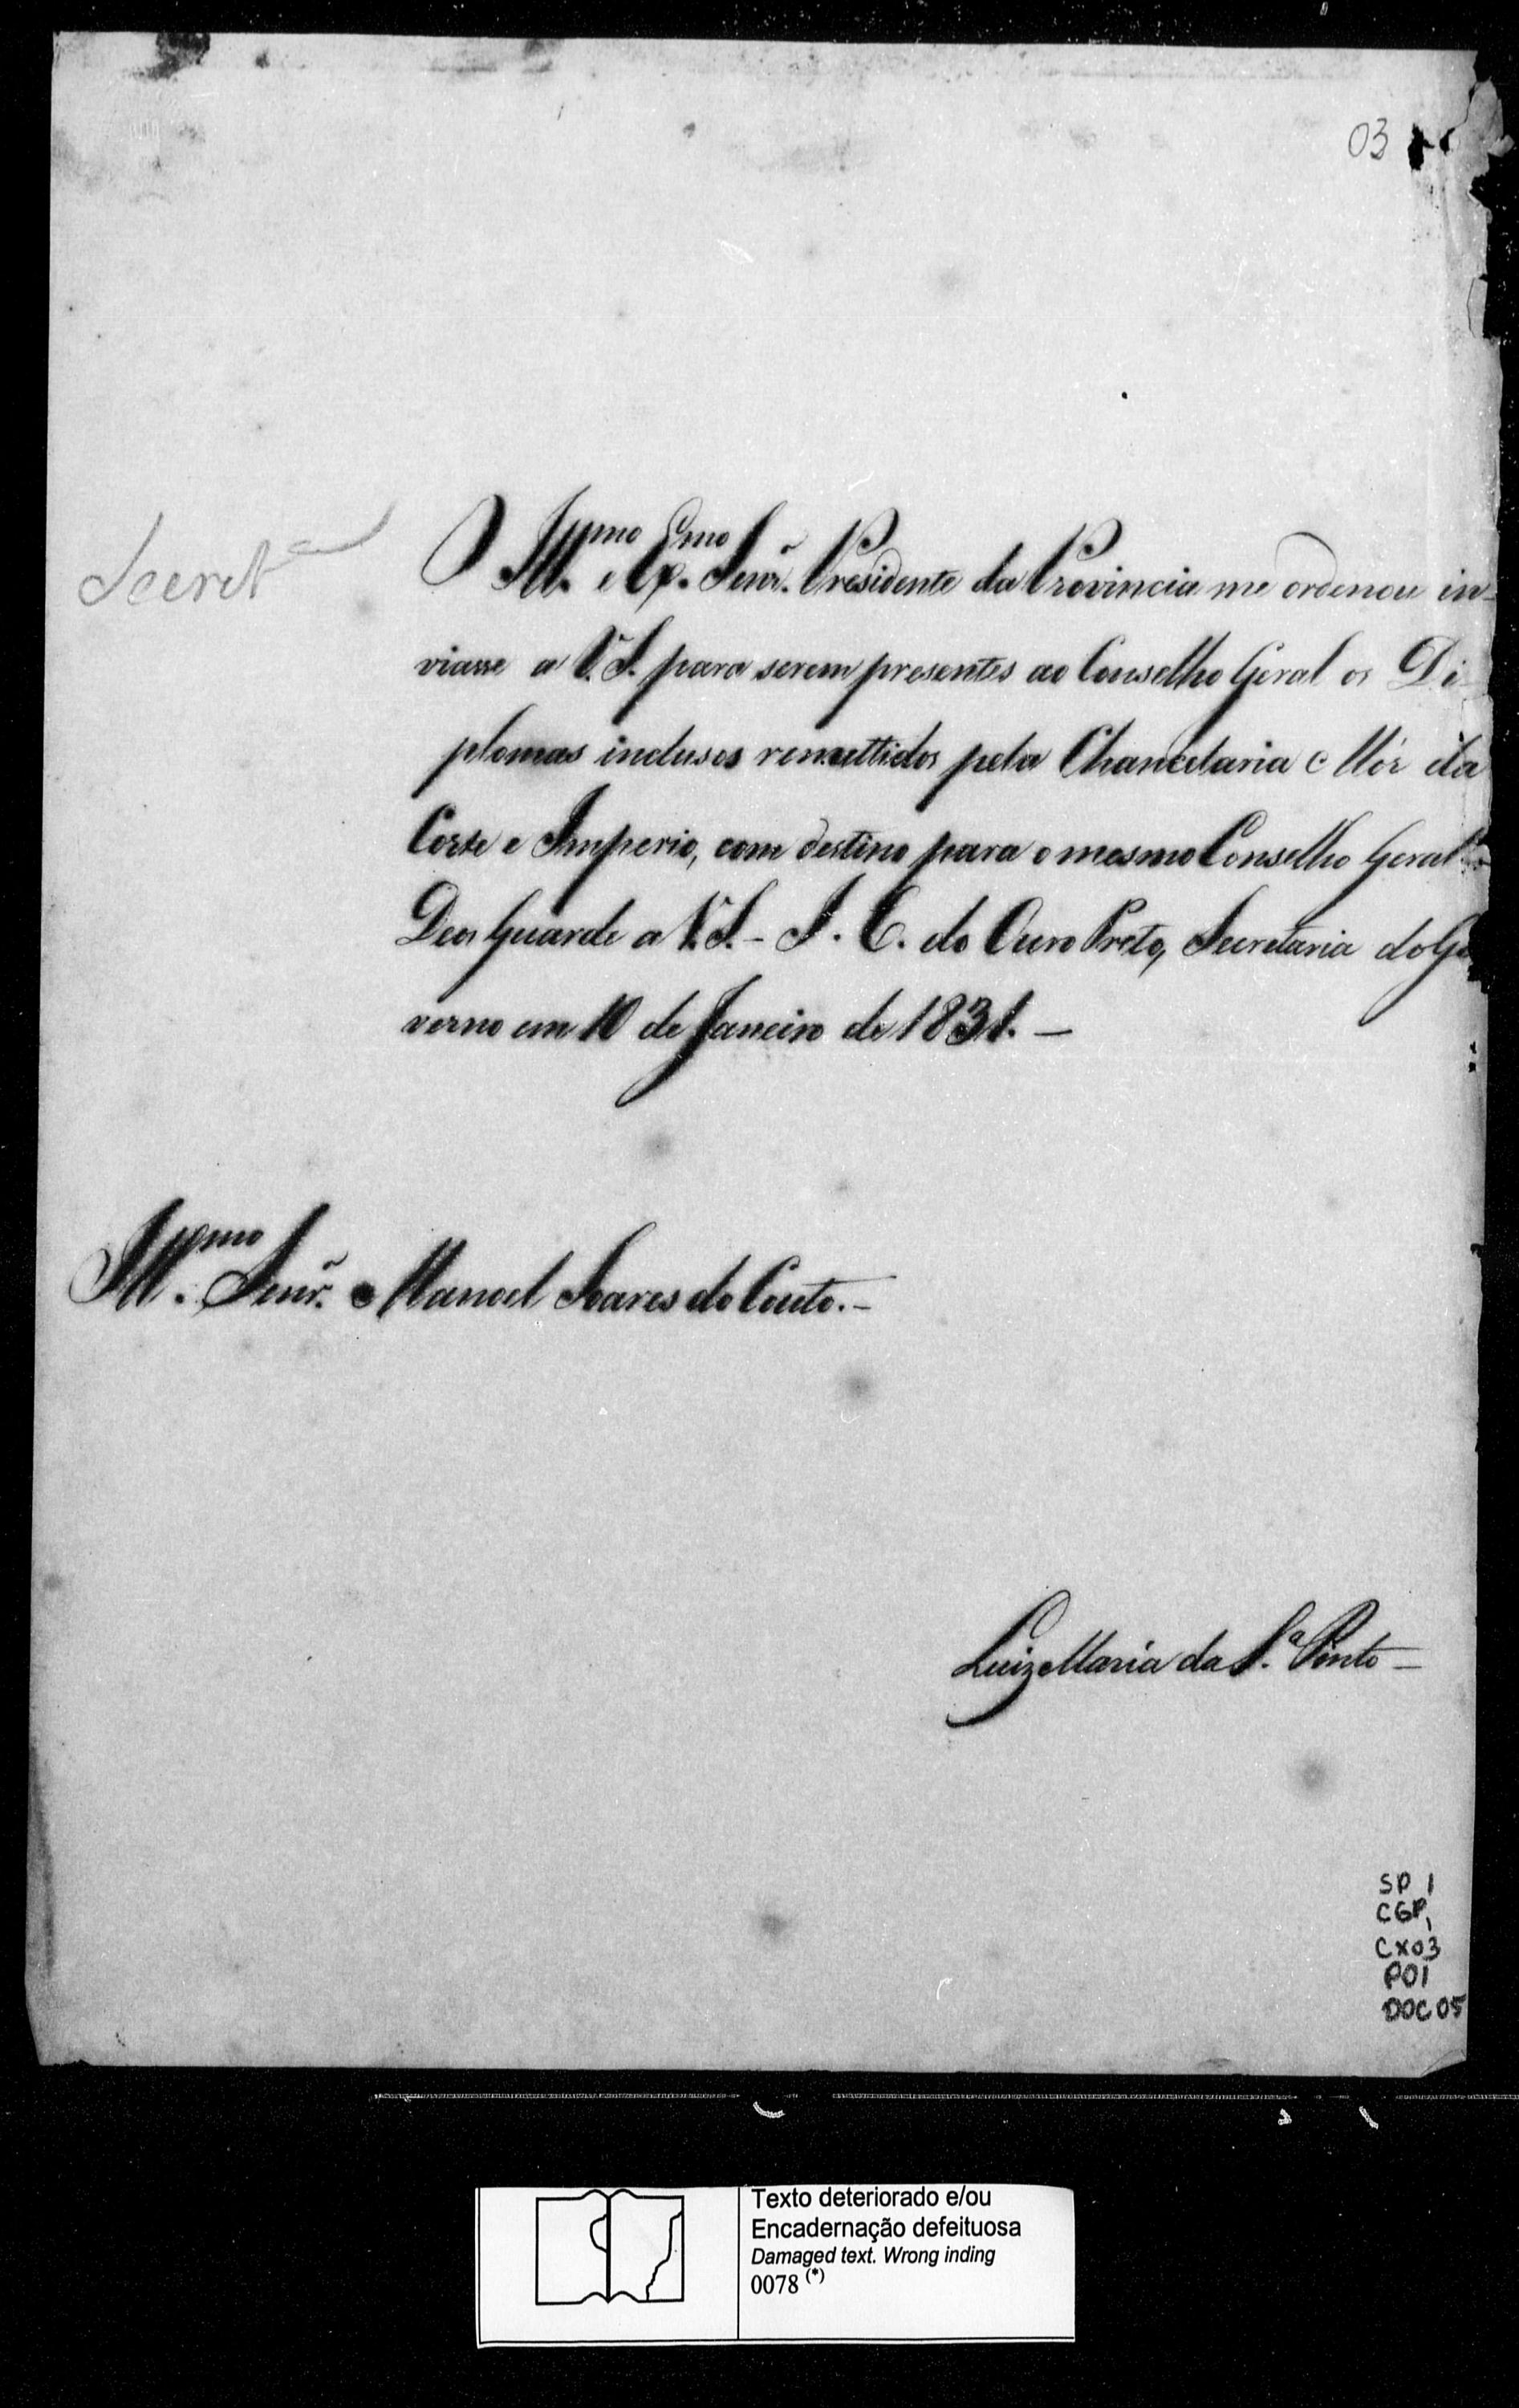 03
Secret.ª
O Ill.mo e Ex.mo Senr. Presidente da Provincia me ordenou in-
viasse a V. S. para serem presentes ao Conselho Geral os Di-
plomas inclusos remettidos pela Chancelaria Mór da
Corte e Imperio, com destino para o mesmo Conselho Geral.
Deos Guarde a V. S. - I. C. do Ouro Preto, Secretaria do Go
verno em 10 de Janeiro de 1831. —
Ill.mo Senr. Manoel Soares do Couto. -
Luiz Maria da S.ª Pinto -
SP 1
CGP 1
CX03
P01
DOC 05
Texto deteriorado e/ou
Encadernação defeituosa
Damaged text. Wrong inding
0078 (*)